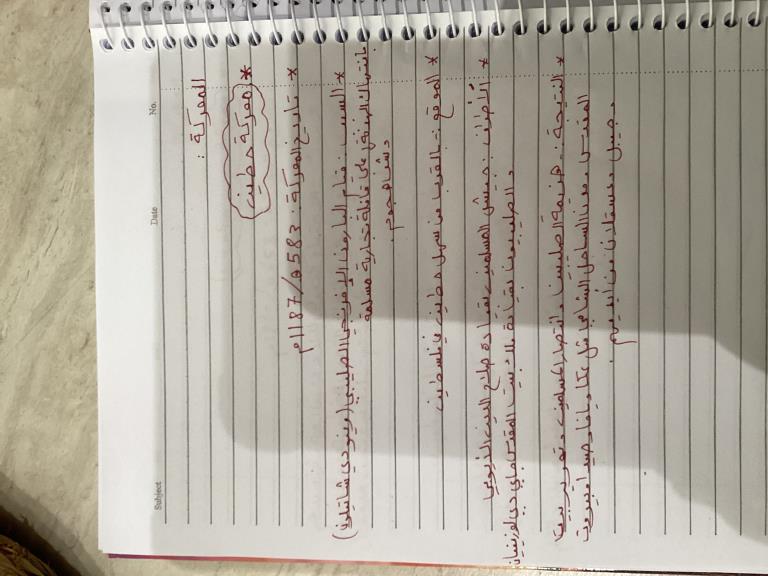 Subject
Date
No.
المعركة :
* معركة حطين
* تاريخ المعركة : 583هـ / 1187م
* السبب : قيام البارون الإفرنجي الصليبي (رينودي شاتيون)
بانتهاك الهدنة في على قافلة تجارية مسلمة
هجوم.
* الموقع : بالقرب من سهل حطين في فلسطين
* الأطراف : جيش المسلمين بقيادة صلاح الدين الأيوبي
والصليبيون بقيادة ملك بيت المقدس جاي دي لوزينيان
* النتيجة : هزيمة الصليبين وانتصار المسلمين وتحرير بيت
المقدس ومدن الساحل الشامي مثل عكا ويافا وصيدا وبيروت
وجبيل وعسقلان من أيديهم .